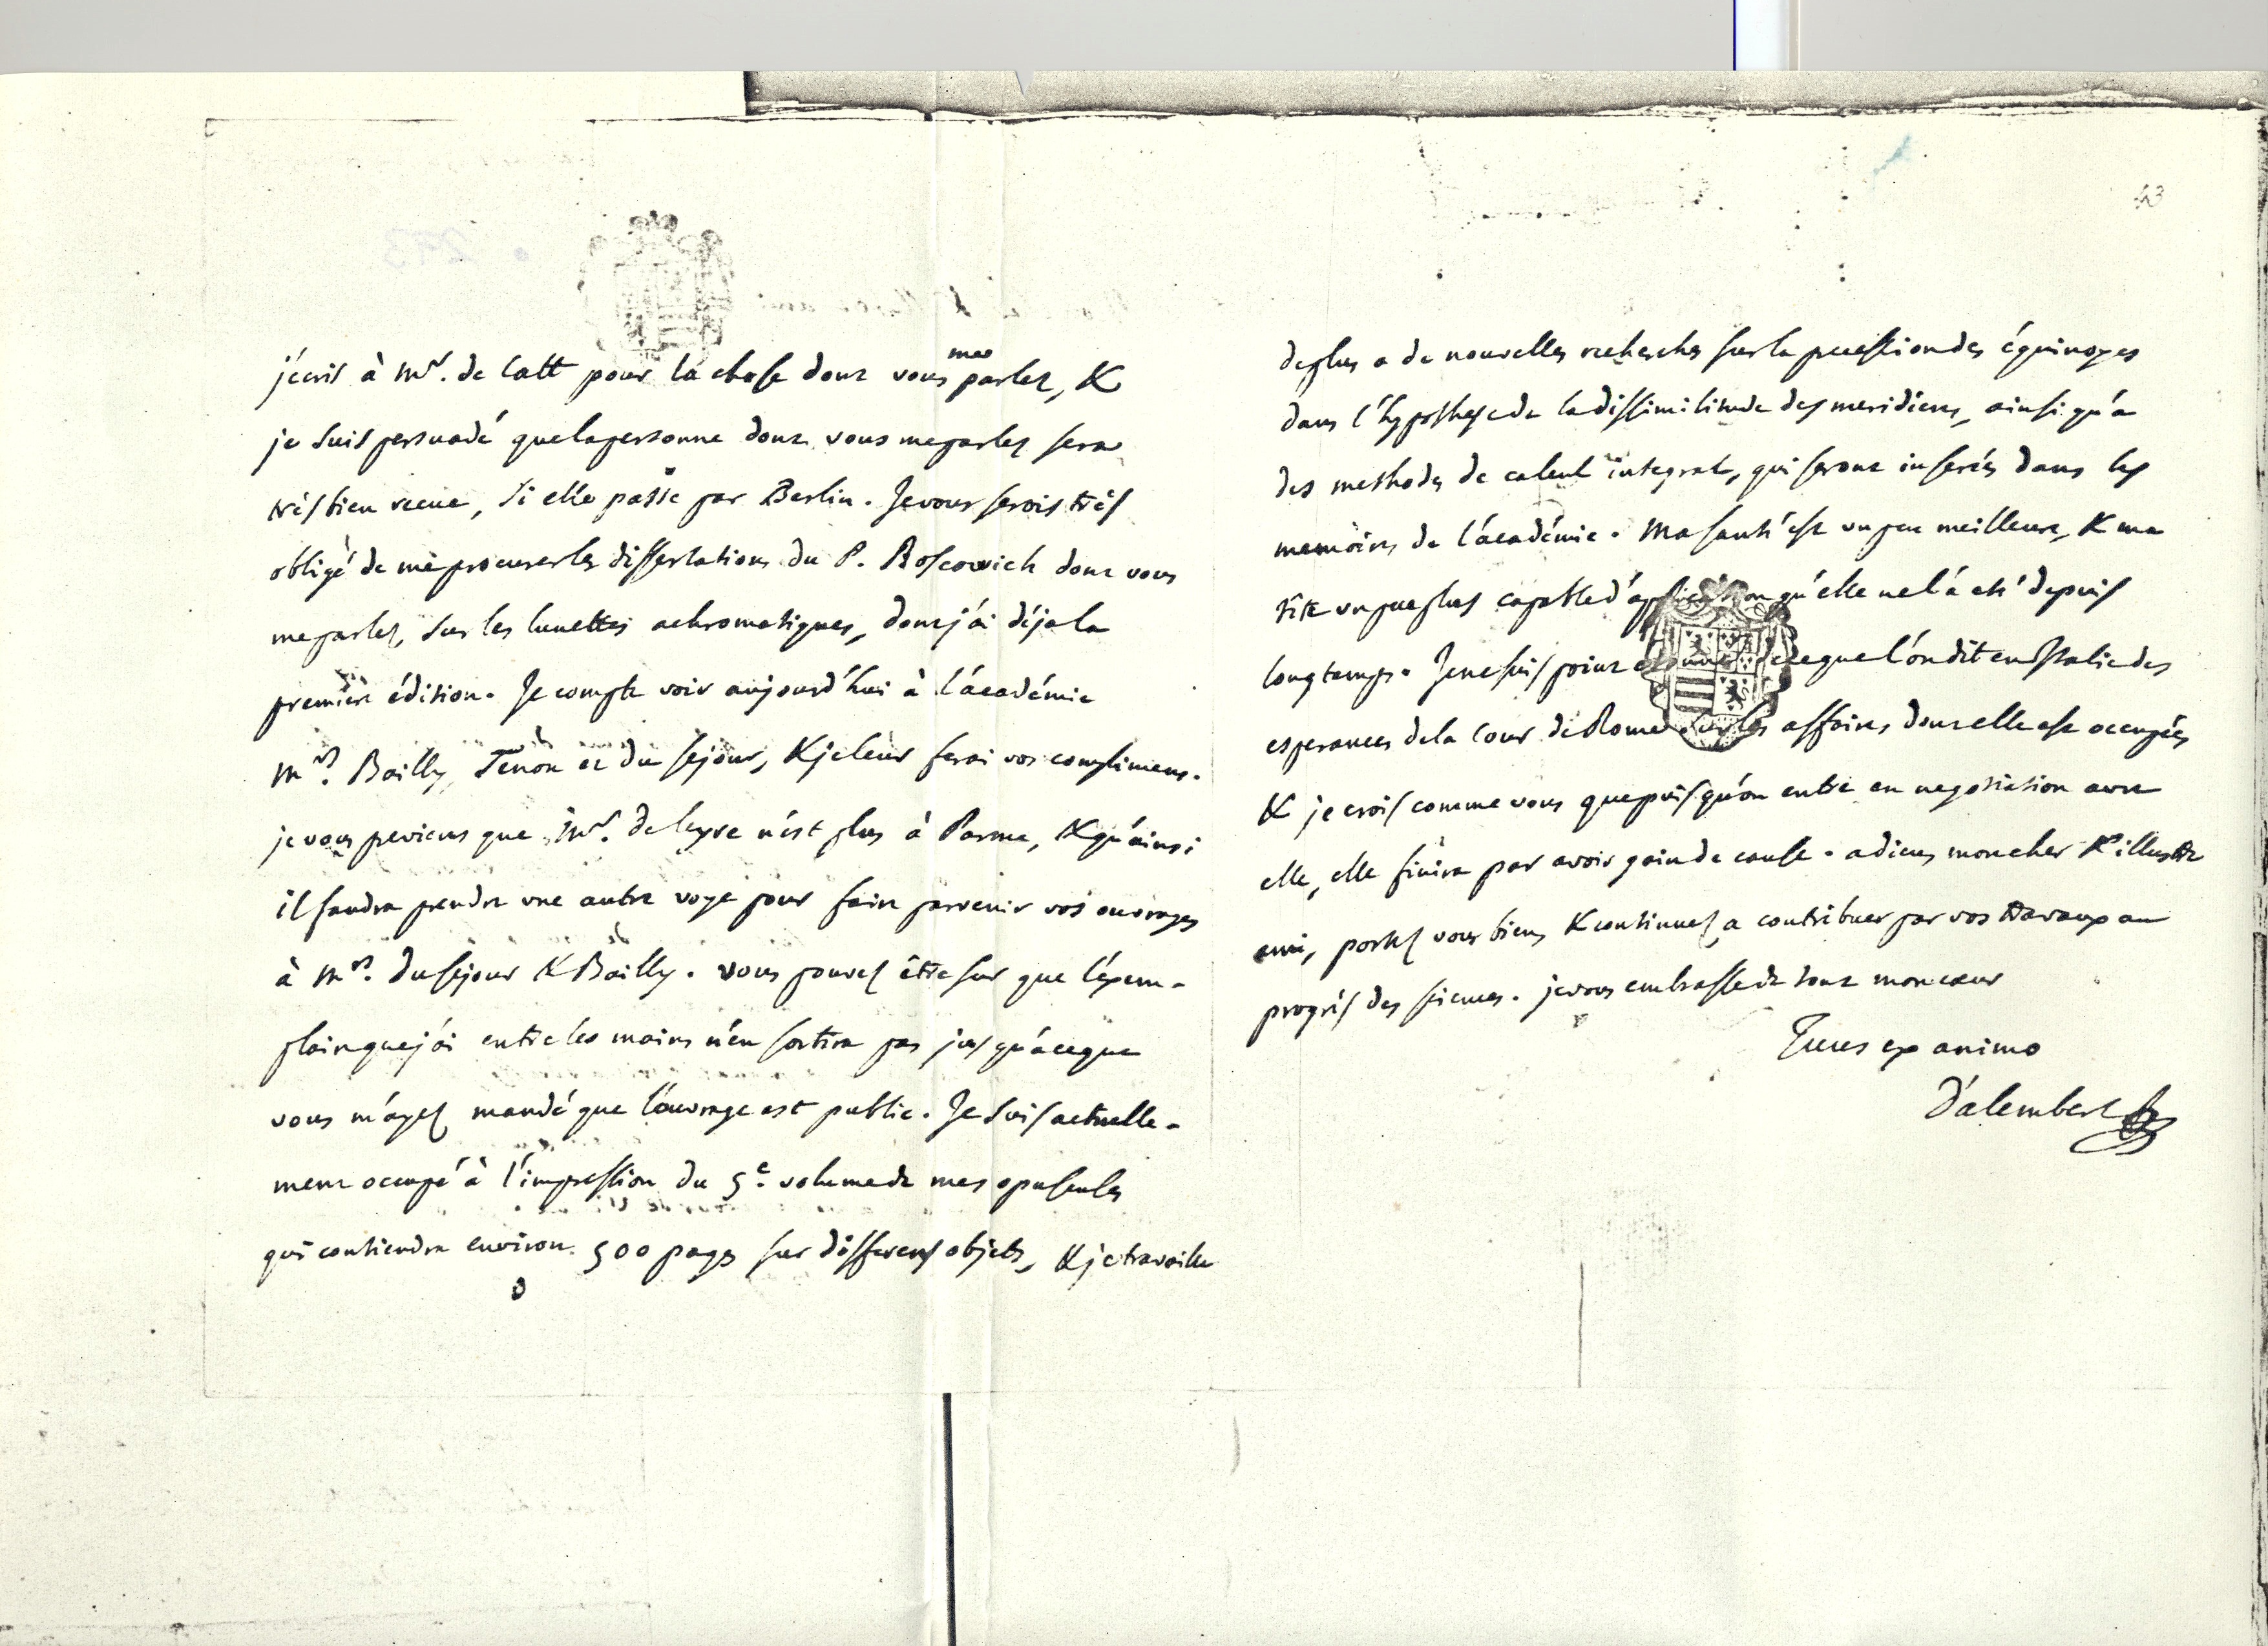 j'ecris à Mr. de Catt pour la chose dont vous me parlez, &
je suis persuadé que la personne dont vous me parlez sera
très bien recue, si elle passe par Berlin. Je vous serois très
obligé de me procurer les dissertations du P. Boscowich dont vous
me parlez, sur les lunettes achromatiques, dont j'ai déja la
premiere édition. Je compte voir aujourd'hui à l'académie
Mrs. Bailly, Tenon et du Sejour, & je leur ferai vos complimens.
je vous previens que Mr. de leyre n'est plus à Parme, & qu'ainsi
il faudra prendre une autre voye pour faire parvenir vos ouvrages
à Mrs. du Sejour & Bailly. vous pouvez être sur que l'exem-
plaire que j'ai entre les mains n'en sortira pas jusqu'à ce que
vous m'ayez mandé que l'ouvrage est public. Je suis actuelle-
ment occupé à l'impression du 5e. volume de mes opuscules
qui contiendra environ 500 pages sur differens objets, & je travaille
43
de plus a de nouvelles recherches sur la precession des équinoxes
dans l'hypothese de la dissimilitude des meridiens, ainsi qu'a
des methodes de calcul integral, qui seront inserées dans les
memoires de l'académie. Ma santé est un peu meilleure, & ma
tête un peu plus capable d'application qu'elle ne l'a eté depuis
longtemps. Je ne suis point etonné de ce que l'on dit en Italie des
esperances de la Cour de Rome sur les affaires dont elle est occupée,
& je crois comme vous que puisqu'on entre en negotiation avec
elle, elle finira par avoir gain de cause. adieu mon cher & illustre
ami, portez vous bien, & continuez a contribuer par vos travaux au
progrès des sciences. je vous embrasse de tout mon cœur
Tuus ex animo
D'alembert